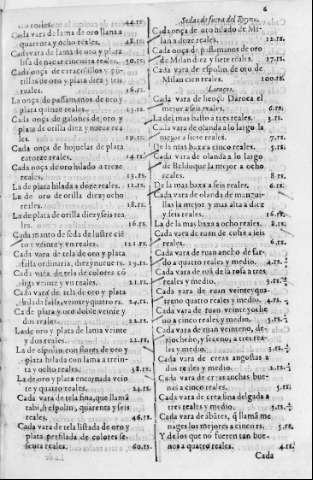 6
reales. 44.rs.
Cada vara de lama de oro llana a
quarenta y ocho reales. 48.rs.
Cada vara de lama de oro y plata
lisa de nacar cincuenta reales. 50.rs.
Cada onça de caracolillos y
de oro y plata diez y seis
reales. 16.rs.
La onça de passamanos de oro y
plata quinze reales. 15.rs.
Cada onça de galones de oro y
plata de orilla diez y nueue rea
les. 19.rs.
Cada onça de hojuelas de plata
catorze reales. 14.rs.
Cada onça de oro hilado a treze
reales. 13.rs.
La de plata hilada a doze reales. 12.rs.
La de oro de orilla diez y ocho
reales. 18.rs.
La de plata de orilla diez y seis rea
les. 16.rs.
Cada manto de seda de lustre cië
to y veinte y vn reales. 121.rs.
Cada vara de tela de oro y plata
falsa ordinaria, diez y nueue rs. 19.rs.
Cada vara de tela de colores cõ
liga veinte y vn reales. 21.rs.
Cada vara de tela de oro y plata
falsa, veinte y quatro rs. 24.rs.
Ca de plata y oro doble veinte y
dos reales. 22.rs.
La de oro y plata de lama veinte
y dos reales. 22.rs.
La de espolin con flores de oro y
plata hilada con lama a trein-
ta y ocho reales. 38.rs.
La de oro y plata encarnada vein-
te y quatro reales. 24.rs.
Cada vara de tela fina, que llamã
tabi, ò espolin, quarenta y seis
reales. 46.rs.
Cada vara de tela listada de oro y
plata perfilada de colores se-
senta reales. 60.rs.
Sedas de fuera del Reyno.
Cada onça de oro hilado de Mi-
lan a doze reales. 12.rs.
Cada onça de passamanos de oro
de Milan diez y siete reales. 17.rs.
Cada vara de espolin de oro de
Milan cien reales. 100.rs.
Lienços.
Cada vara de lienço Daroca el
mejor a seis reales. 6.rs.
La de mas basto a tres reales. 3.rs.
Cada vara de olanda a lo largo la
mejor a siete reales. 7.rs.
De la mas baxa cinco reales. 5.rs.
Cada vara de olanda a lo largo
de Balduque la mejor a ocho
reales. 8.rs.
De la mas baxa a seis reales. 6.rs.
Cada vara de olanda de
llas la mejor y mas alta a diez
y seis reales. 16.rs.
La de la mas baxa a ocho reales. 8.rs.
Cada vara de ruan de cofre a seis
reales. 6.rs.
Cada vara de ruan ancho de far-
do a quatro reales y medio. 4.rs.½
Cada vara de ruã de la rosa a tres
reales y medio. 3.rs.½
Cada vara de ruan veinte y qua-
treno quatro reales y medio. 4.rs.½
Cada vara de ruan veinte y ocho
no a cinco reales y medio. 5.rs.½
Cada vara de ruan veinteno, de
ziocheno, y seceno, a tres rea-
les y medio. 3.rs.½
Cada vara de creas angostas a
dos reales y medio. 2.rs.½
Cada vara de creas anchas bue-
nas a cinco reales. 5.rs.
Cada vara de crea fina delgada a
tres reales y medio. 3.rs.½
Cada vara de ãbares, q̃ llamã me
nages los mejores a cinco rs. 5.rs.
Y de los que no fueren tan bue-
nos a quatro reales. 4.rs.
Cada